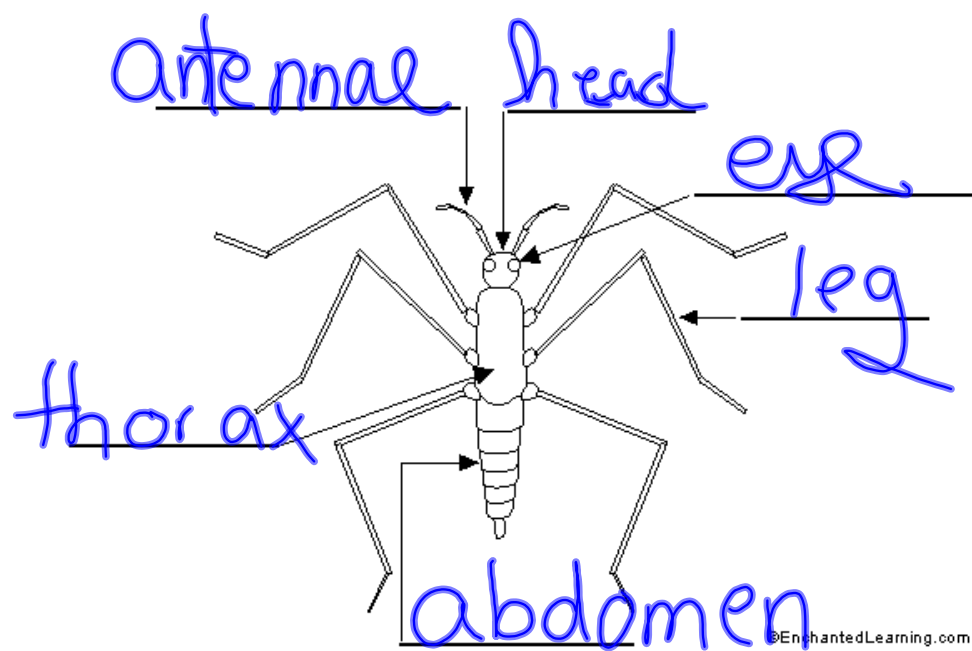 antennae head
eye
leg
thorax
abdomen
©EnchantedLearning.com